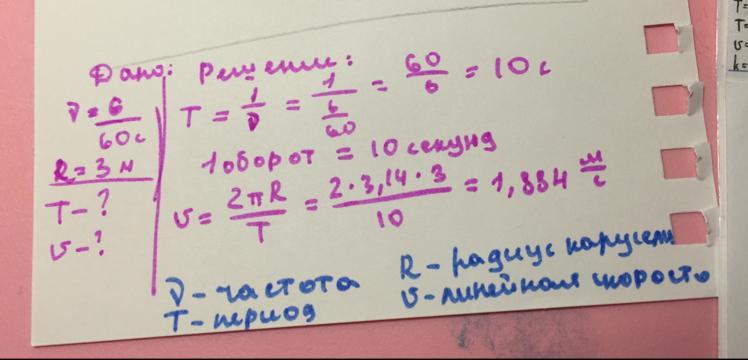 Дано:
ν = 6/60c
R = 3 м
T - ?
υ - ?
Решение:
T = 1/ν = 1/(6/60) = 60/6 = 10 c
1 оборот = 10 секунд
υ = 2πR/T = 2·3,14·3/10 = 1,884 м/с
ν - частота
T - период
R - радиус карусели
υ - линейная скорость
T=
T=
υ=
k=